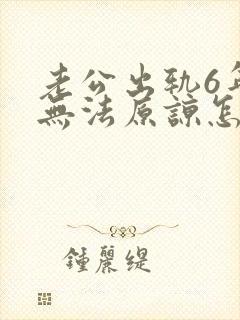 老公出軌6年
無法原諒怎
鍾麗緹